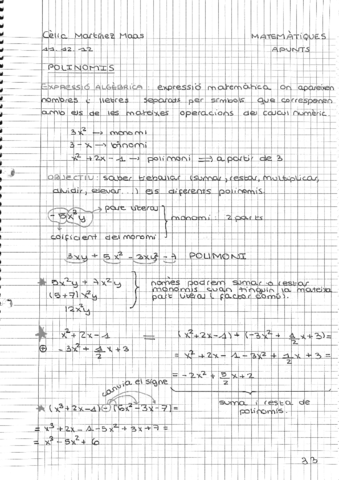 Cèlia Martínez Maas
MATEMÀTIQUES
11.12.12
APUNTS
POLINOMIS
EXPRESSIÓ ALGÈBRICA: expressió matemàtica on apareixen
nombres i lletres separats per símbols que corresponen
amb els de les mateixes operacions del càlcul numèric.
3x² → monomi
3-x → binomi
x²+2x-1 → polinomi ⟹ a partir de 3
OBJECTIU: saber treballar (sumar, restar, multiplicar,
dividir, elevar...) els diferents polinomis.
part literal
-5x²y
monomi: 2 parts
coificient del monomi
3xy + 5x² - 2xy² - 7 POLINOMI
* 5x²y + 7x²y
(5+7)x²y
12x²y
només podrem sumar o restar
monomis quan tinguin la mateixa
part literal (factor comú).
* x²+2x-1
⊕ -3x²+1/2x+3
= (x²+2x-1)+(-3x²+1/2x+3)=
= x²+2x-1-3x²+1/2x+3=
= -2x²+5/2x+2
canvia el signe
* (x³+2x-1)-(5x²-3x-7)=
= x³+2x-1-5x²+3x+7=
= x³-5x²+6
suma i resta de
polinomis.